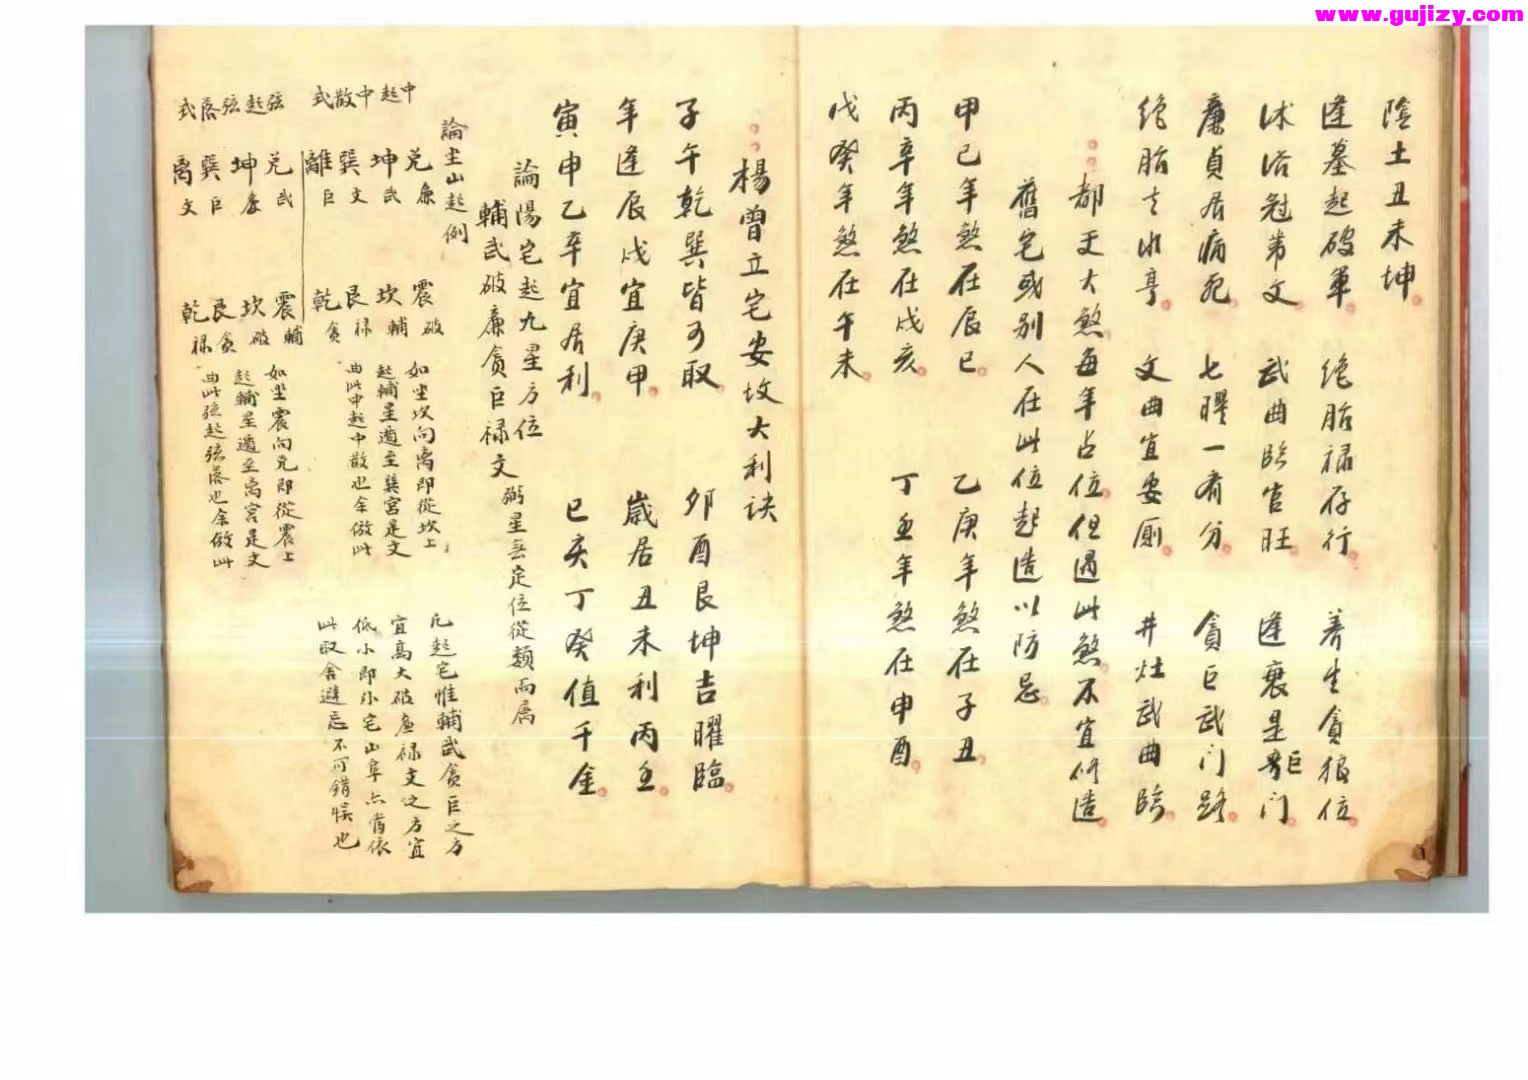 www.gujizy.com
陰土丑未坤
逢墓起破軍 絶胎祿存行 養生貪狼位
沐浴冠帶文 武曲臨官旺 逢衰是巨門
廉貞居病死 七曜一齊分 貪巨武門路
絶胎 文曲宜安厠 井灶武曲臨
都天大煞每年占位但遇此煞不宜修造
舊宅或別人在此位起造以防忌
甲己年煞在辰巳 乙庚年煞在子丑
丙辛年煞在戌亥 丁壬年煞在申酉
戊癸年煞在午未
楊曾立宅安坟大利訣
子午乾巽皆可取 卯酉艮坤吉曜臨
年逢辰戌宜庚甲 歲居丑未利丙壬
寅申乙辛宜居利 巳亥丁癸值千金
論陽宅起九星方位
輔武破廉貪巨祿文 弼星無定位從類而属
論坐山起例
中起中散式
兌廉 坤武 巽文 離巨
震破 坎輔 艮祿 乾貪
如坐坎向离即從坎上
起輔星遁至巽宮是文
曲此中起中散也余倣此
弦起弦落式
兌武 坤廉 巽巨 离文
震輔 坎破 艮貪 乾祿
如坐震向兌即從震上
起輔星遁至离宮是文
曲此弦起弦落也余倣此
凡起宅惟輔武貪巨之方
宜高大破廉祿文之方宜
低小即外宅山阜亦當依
此取舍避忌不可錯悮也